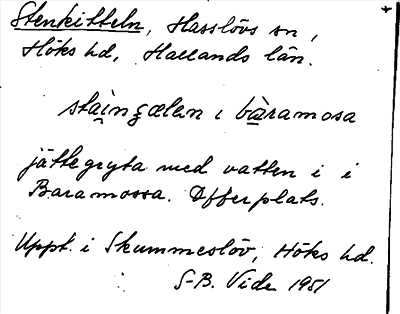 Stenkitteln, Hasslövs sn,
Höks hd, Hallands län.
stai̯nʒælen ı bàramosa
jättegryta med vatten i i
Baramossa. Offerplats.
Uppt. i Skummeslöv, Höks hd.
S-B. Vide 1951